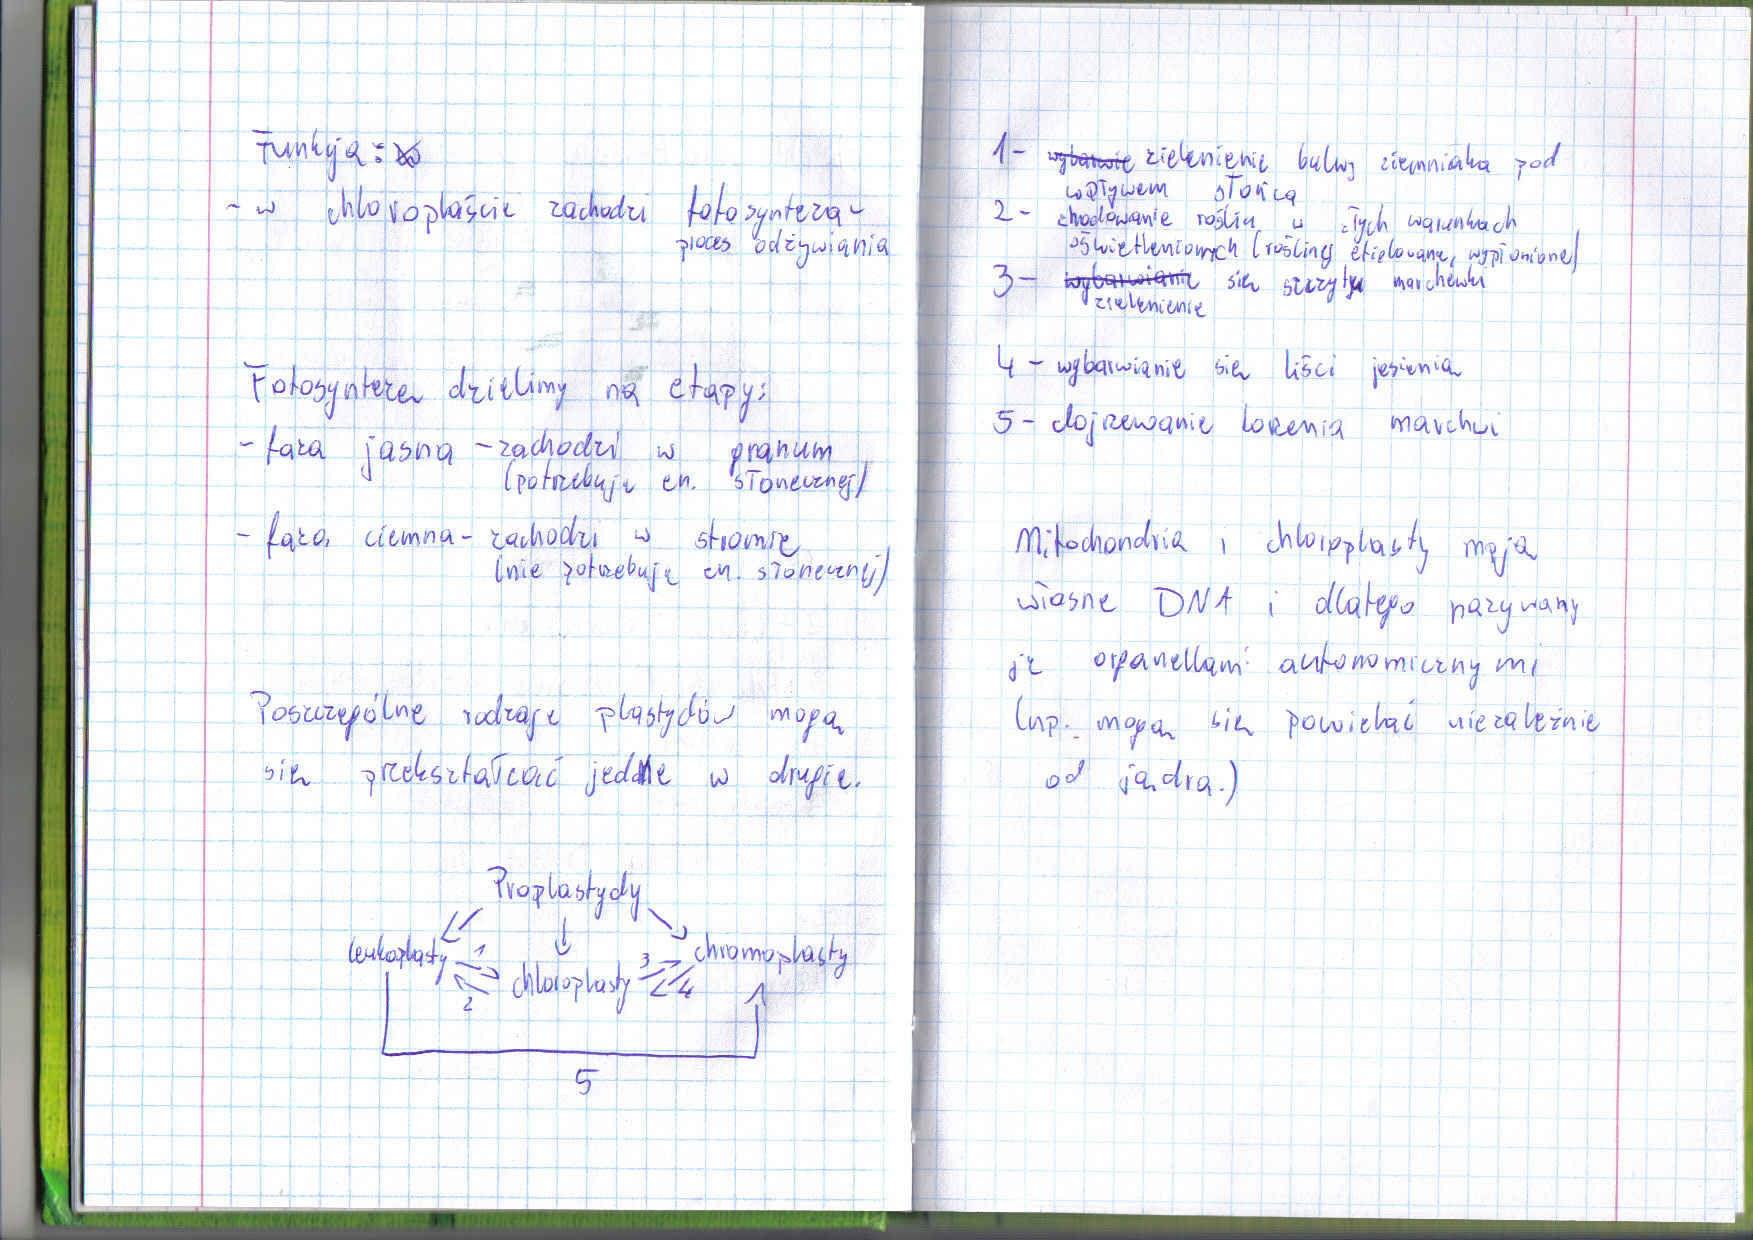 Funkcja:
- w chloroplaście zachodzi fotosynteza -
proces odżywiania
Fotosyntezę dzielimy na etapy:
- faza jasna - zachodzi w granum
(potrzebuje en. słonecznej)
- faza ciemna - zachodzi w stromie
(nie potrzebuje en. słonecznej)
Poszczególne rodzaje plastydów mogą
się przekształcać jedne w drugie.
Proplastydy
leukoplasty 1 chloroplasty 3 chromoplasty
2 4
5
1 - wybarwie zielenienie bulwy ziemniaka pod
wpływem słońca
2 - chodowanie roślin w złych warunkach
oświetleniowych (rośliny etiolowane, wypłonione)
3 - wybarwianie się szczytu marchewki
zielenienie
4 - wybarwianie się liści jesienią
5 - dojrzewanie korzenia marchwi
Mitochondria i chloroplasty mają
własne DNA i dlatego nazywamy
je organellami autonomicznymi
(np. mogą się powielać niezależnie
od jądra.)